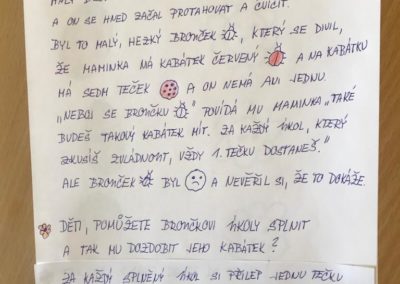 A ON SE HNED ZAČAL PROTAHOVAT A CVIČIT.
BYL TO MALÝ, HEZKÝ BRONČEK, KTERÝ SE DIVIL,
ŽE MAMINKA MÁ KABÁTEK ČERVENÝ A NA KABÁTKU
MÁ SEDM TEČEK A ON NEMÁ ANI JEDNU.
„NEBOJ SE BRONČKU" POVÍDÁ MU MAMINKA „TAKÉ
BUDEŠ TAKOVÝ KABÁTEK MÍT. ZA KAŽDÝ ÚKOL, KTERÝ
ZKUSÍŠ ZVLÁDNOUT, VŽDY 1. TEČKU DOSTANEŠ."
ALE BRONČEK BYL A NEVĚŘIL SI, ŽE TO DOKÁŽE.
DĚTI, POMŮŽETE BRONČKOVI ÚKOLY SPLNIT
A TAK MU DOZDOBIT JEHO KABÁTEK?
ZA KAŽDÝ SPLNĚNÝ ÚKOL SI PŘILEP JEDNU TEČKU